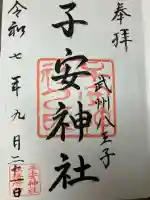 奉拝
武州八王子
子安神社
令和七年九月二十一日
子安神社